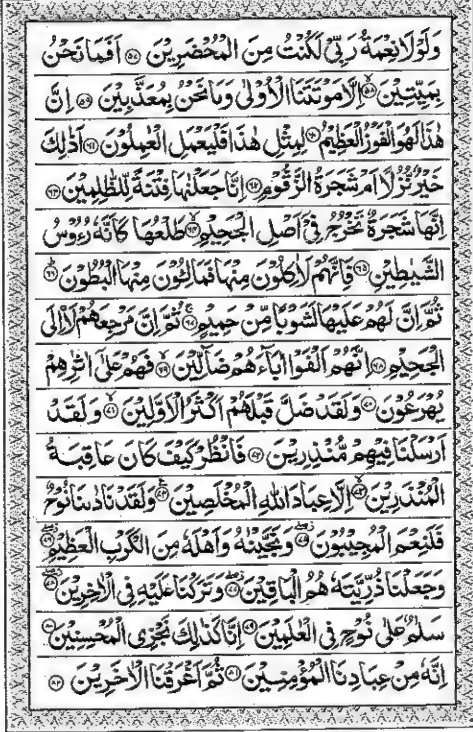 وَلَوْلَا نِعْمَةُ رَبِّيْ لَكُنْتُ مِنَ الْمُحْضَرِيْنَ ﴿۵۷﴾ اَفَمَا نَحْنُ
بِمَيِّتِيْنَ ﴿۵۸﴾ اِلَّا مَوْتَتَنَا الْاُوْلٰى وَمَا نَحْنُ بِمُعَذَّبِيْنَ ﴿۵۹﴾ اِنَّ
هٰذَا لَهُوَ الْفَوْزُ الْعَظِيْمُ ﴿۶۰﴾ لِمِثْلِ هٰذَا فَلْيَعْمَلِ الْعٰمِلُوْنَ ﴿۶۱﴾ اَذٰلِكَ
خَيْرٌ نُّزُلًا اَمْ شَجَرَةُ الزَّقُّوْمِ ﴿۶۲﴾ اِنَّا جَعَلْنٰهَا فِتْنَةً لِّلظّٰلِمِيْنَ ﴿۶۳﴾
اِنَّهَا شَجَرَةٌ تَخْرُجُ فِيْۤ اَصْلِ الْجَحِيْمِ ﴿۶۴﴾ طَلْعُهَا كَاَنَّهٗ رُءُوْسُ
الشَّيٰطِيْنِ ﴿۶۵﴾ فَاِنَّهُمْ لَاٰكِلُوْنَ مِنْهَا فَمَالِـُٔوْنَ مِنْهَا الْبُطُوْنَ ﴿۶۶﴾
ثُمَّ اِنَّ لَهُمْ عَلَيْهَا لَشَوْبًا مِّنْ حَمِيْمٍ ﴿۶۷﴾ ثُمَّ اِنَّ مَرْجِعَهُمْ لَا۟اِلَى
الْجَحِيْمِ ﴿۶۸﴾ اِنَّهُمْ اَلْفَوْا اٰبَآءَهُمْ ضَآلِّيْنَ ﴿۶۹﴾ فَهُمْ عَلٰٓى اٰثٰرِهِمْ
يُهْرَعُوْنَ ﴿۷۰﴾ وَلَقَدْ ضَلَّ قَبْلَهُمْ اَكْثَرُ الْاَوَّلِيْنَ ﴿۷۱﴾ وَلَقَدْ
اَرْسَلْنَا فِيْهِمْ مُّنْذِرِيْنَ ﴿۷۲﴾ فَانْظُرْ كَيْفَ كَانَ عَاقِبَةُ
الْمُنْذَرِيْنَ ﴿۷۳﴾ اِلَّا عِبَادَ اللّٰهِ الْمُخْلَصِيْنَ ﴿۷۴﴾ وَلَقَدْ نَادٰىنَا نُوْحٌ
فَلَنِعْمَ الْمُجِيْبُوْنَ ﴿۷۵﴾ وَنَجَّيْنٰهُ وَاَهْلَهٗ مِنَ الْكَرْبِ الْعَظِيْمِ ﴿۷۶﴾
وَجَعَلْنَا ذُرِّيَّتَهٗ هُمُ الْبٰقِيْنَ ﴿۷۷﴾ وَتَرَكْنَا عَلَيْهِ فِى الْاٰخِرِيْنَ ﴿۷۸﴾
سَلٰمٌ عَلٰى نُوْحٍ فِى الْعٰلَمِيْنَ ﴿۷۹﴾ اِنَّا كَذٰلِكَ نَجْزِى الْمُحْسِنِيْنَ ﴿۸۰﴾
اِنَّهٗ مِنْ عِبَادِنَا الْمُؤْمِنِيْنَ ﴿۸۱﴾ ثُمَّ اَغْرَقْنَا الْاٰخَرِيْنَ ﴿۸۲﴾